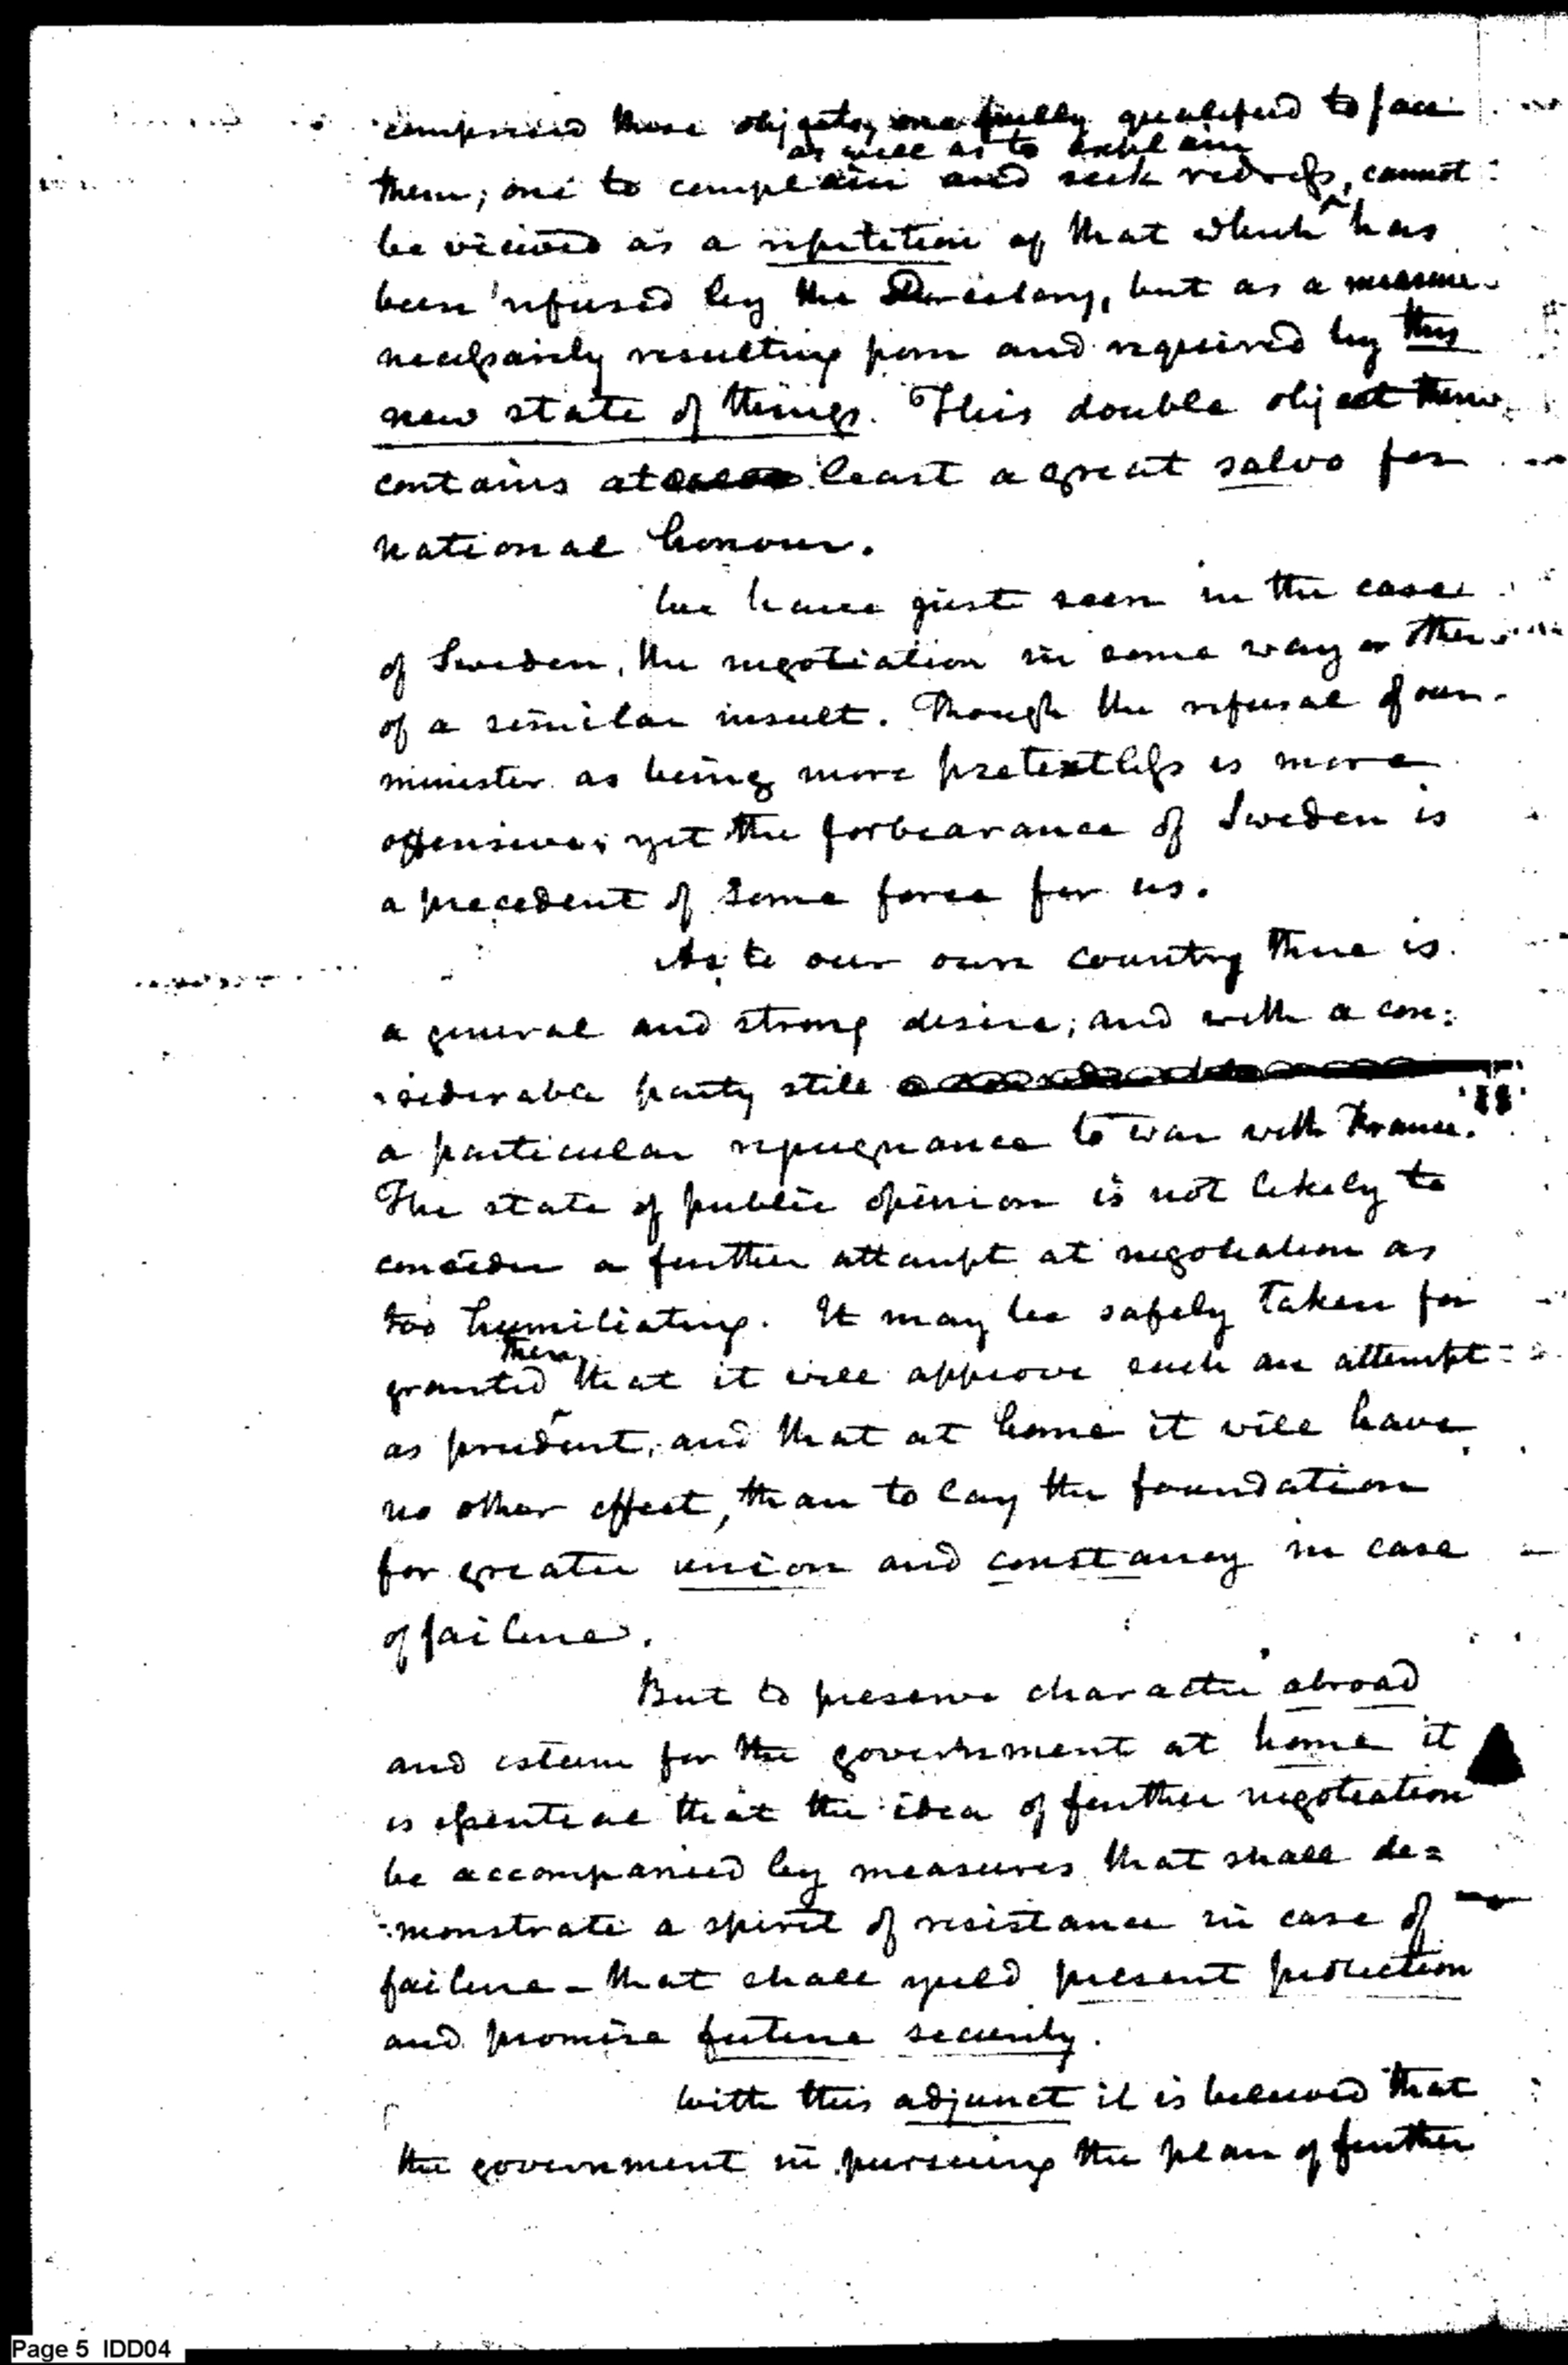 comprised those objects, one fully qualified to face
as well as to explain
them; one to complain and seek redress, cannot
be viewed as a repetition of that which has
been refused by the Directory, but as a measure
necessarily resulting from and required by this
new state of things. This double object
contains at least a great salvo for
national honour.
We have just seen in the case
of Sweden, the negotiation in some way or other
of a similar insult. Though the refusal of our
minister as being more pretextless is more
offensive; yet the forbearance of Sweden is
a precedent of some force for us.
As to our own country there is
a general and strong desire; and with a con:
siderable party still
a particular repugnance to war with France.
The state of public opinion is not likely to
consider a further attempt at negotiation as
too humiliating. It may be safely taken for
then
granted that it will approve such an attempt
as prudent, and that at home it will have
no other effect, than to lay the foundation
for greater union and constancy in case
of failure.
But to preserve character abroad
and esteem for the government at home it
is essential that the idea of further negotiation
be accompanied by measures that shall de=
monstrate a spirit of resistance in case of
failure - that shall yield present protection
and promise future security.
With this adjunct it is believed that
the government in pursuing the plan of further
Page 5 IDD04